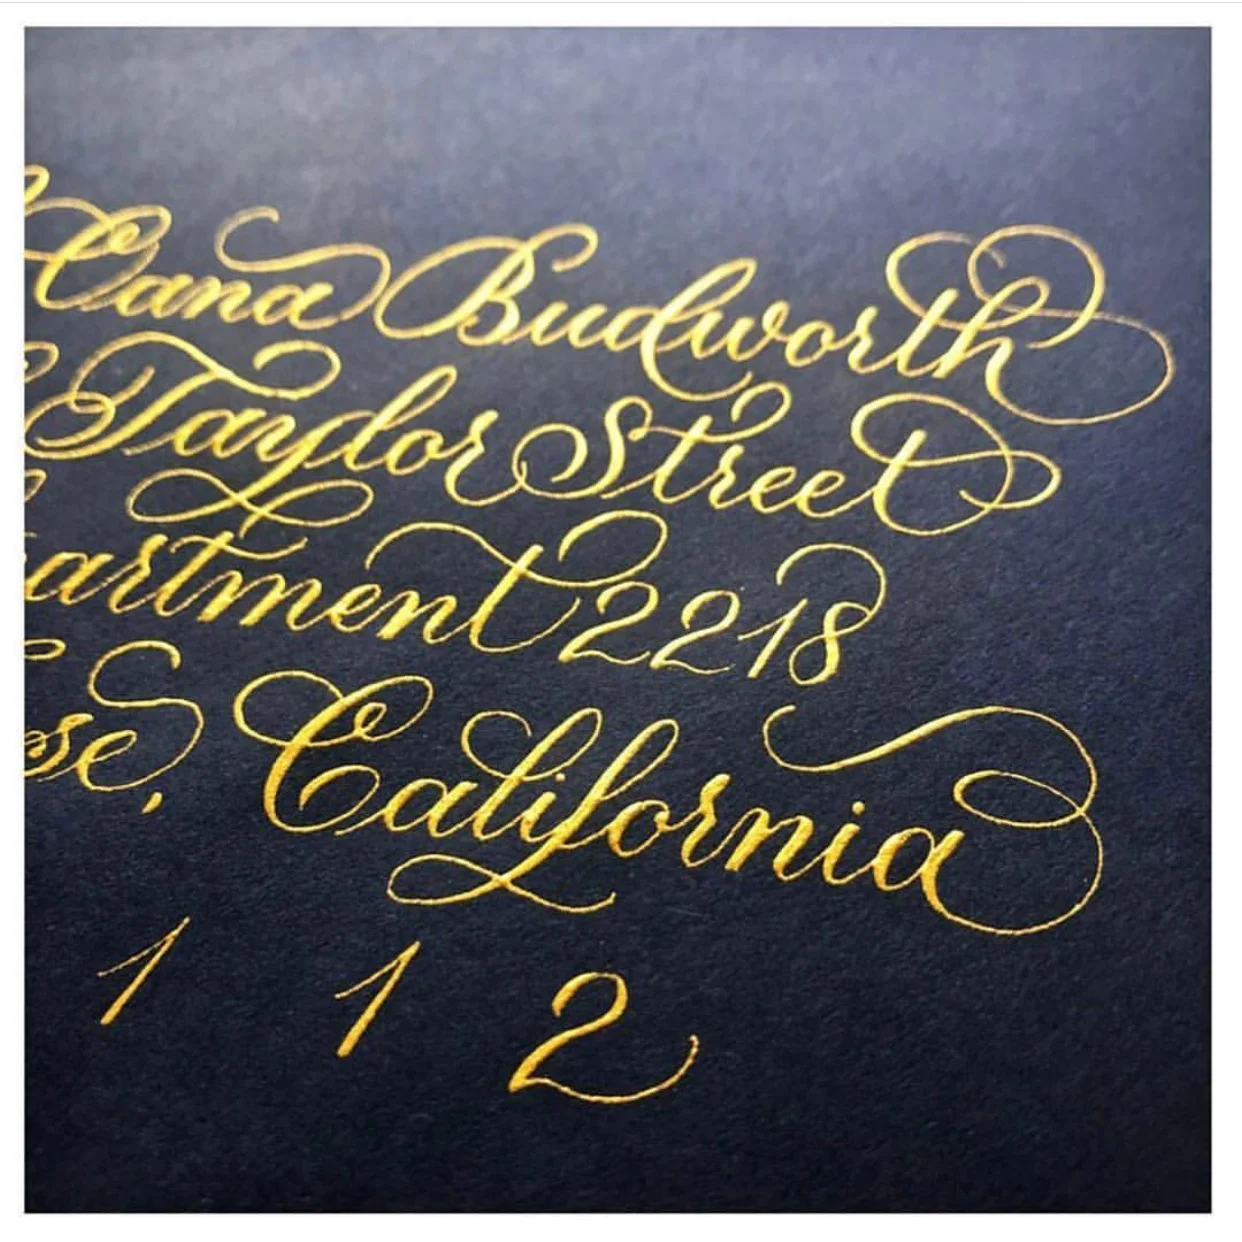 Cana Budworth
Taylor Street
artment 2218
se, California
1 1 2